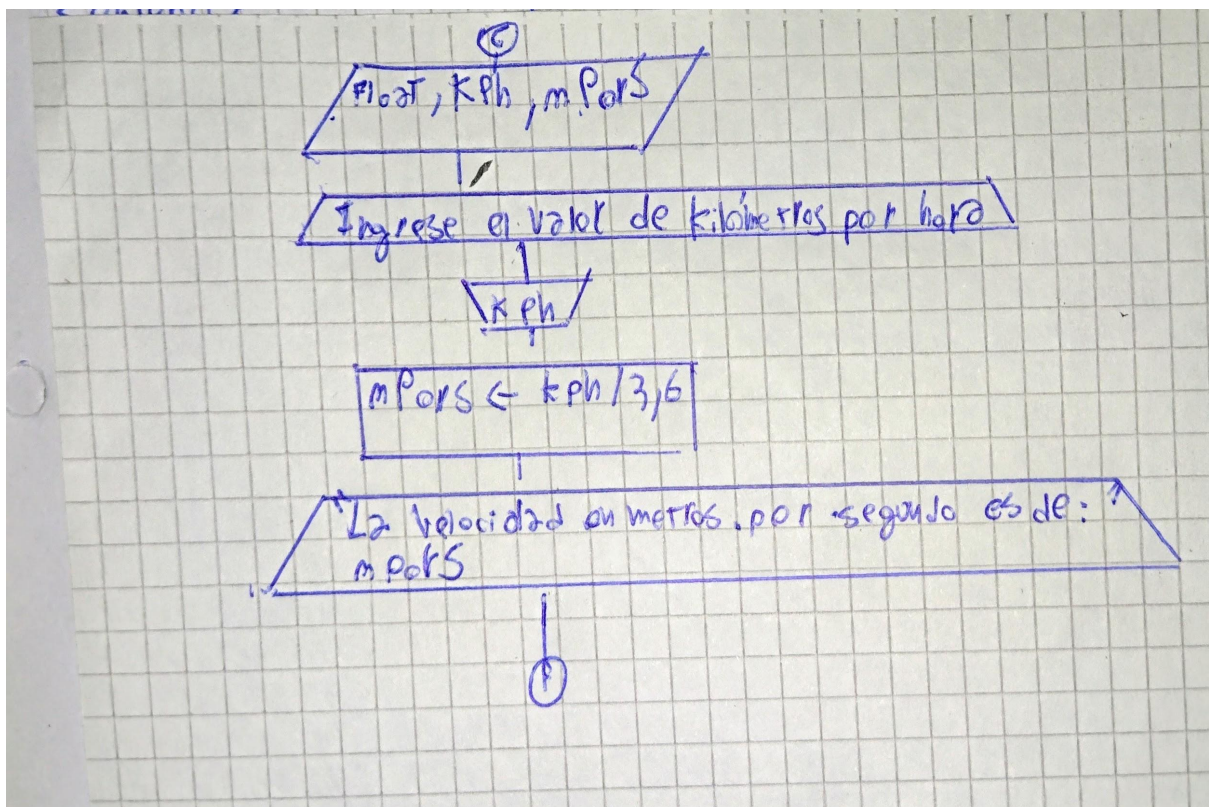 C
Float, KPh, mPorS
Ingrese el valor de kilómetros por hora
KPh
mPorS ← kph/3,6
"La velocidad en metros por segundo es de: "
mPorS
F